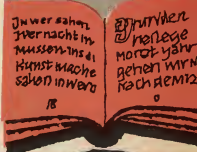 In wer sahen
Iver nacht in
Mussen ins di
Kunst mache
sahen in wero
18
Grunden
heilege
Morgt yahr
gehen wir N
nach dem 12
0